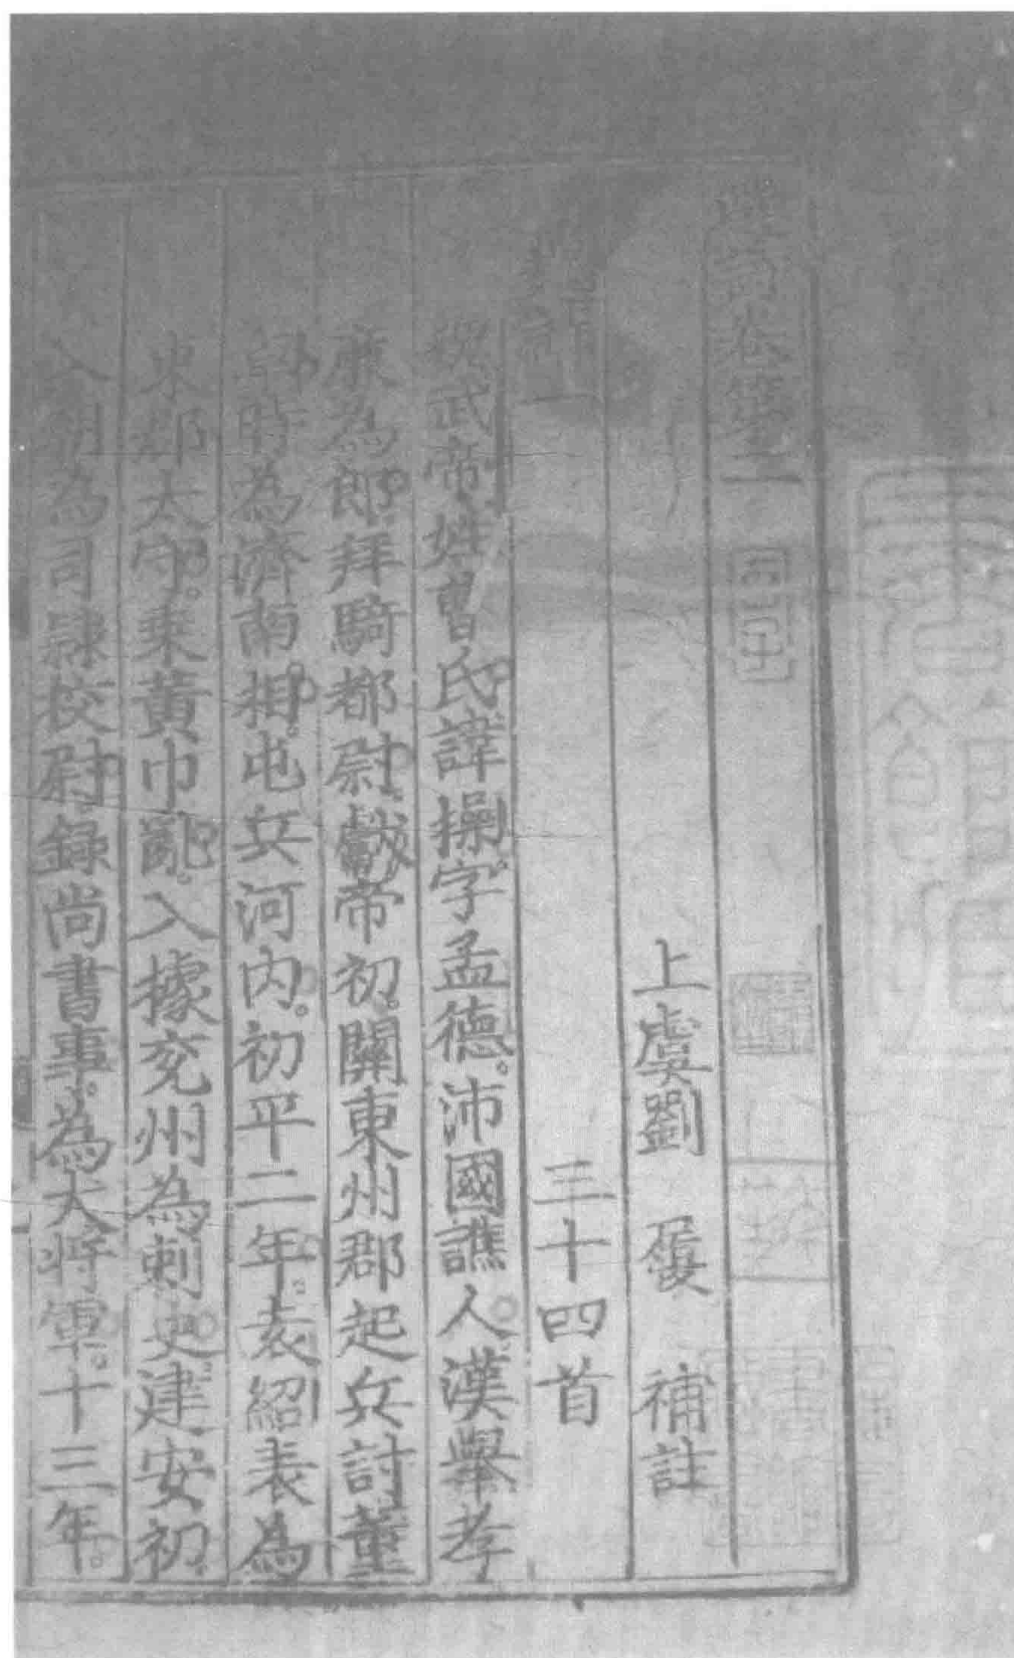 選詩卷第二
上虞劉 履 補註
魏詩一 三十四首
魏武帝姓曹氏諱操字孟德。沛國譙人。漢舉孝
廉為郎。拜騎都尉。獻帝初。關東州郡起兵討董
卓。時為濟南相。屯兵河内。初平二年。袁紹表為
東郡太守。乗黄巾亂。入據兖州為刺史。建安初。
入朝為司隷校尉。錄尚書事。為大将軍。十三年。